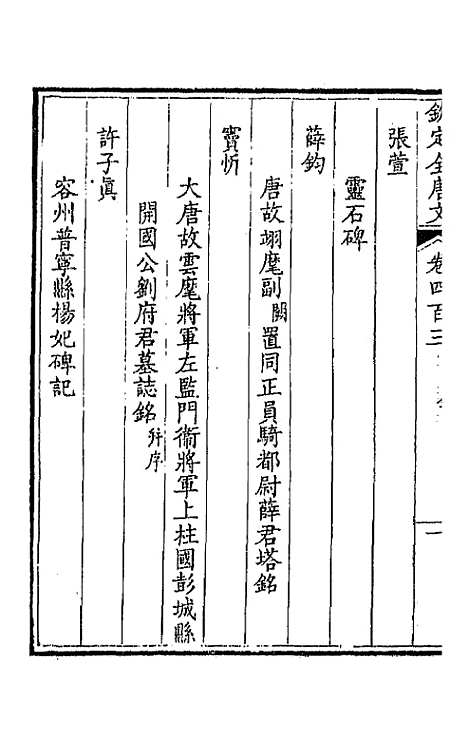 欽定全唐文
卷四百三
一
張萱
靈石碑
薛鈞
唐故翊麾副闕置同正員騎都尉薛君塔銘
竇忻
大唐故雲麾將軍左監門衞將軍上柱國彭城縣
開國公劉府君墓誌銘并序
許子真
容州普寧縣楊妃碑記